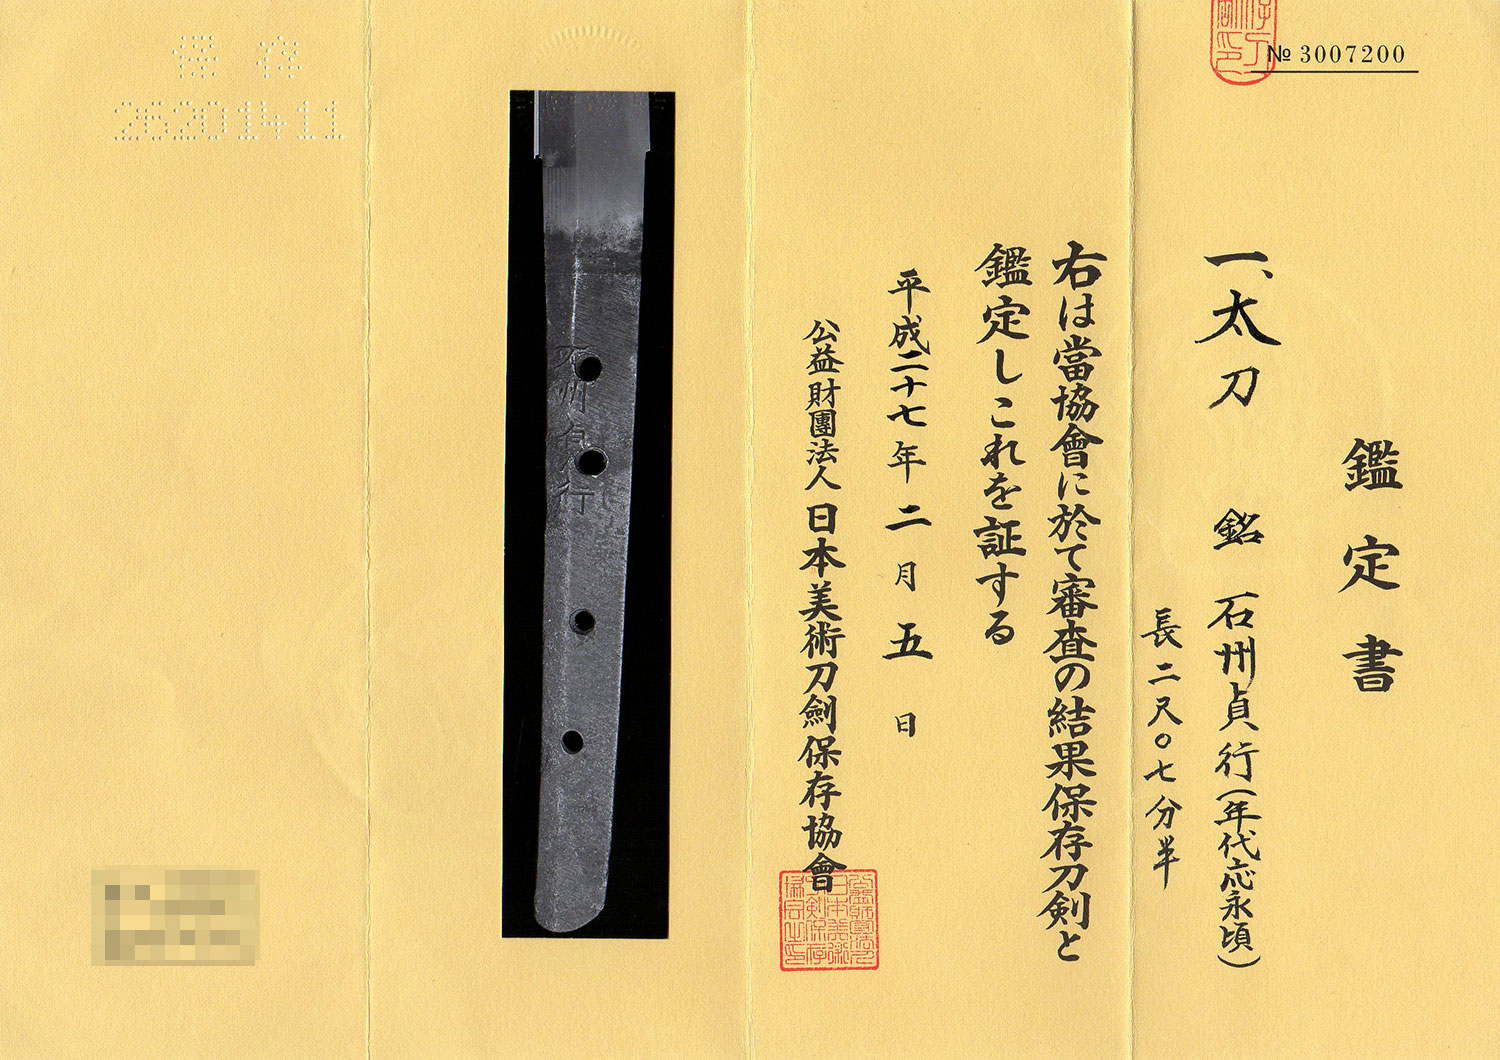 № 3007200
鑑定書
一、太刀 銘 石州貞行(年代応永頃)
長二尺〇七分半
右は當協會に於て審査の結果保存刀剣と
鑑定しこれを証する
平成二十七年二月五日
公益財團法人日本美術刀劍保存協會
石州貞行
保存
26201411